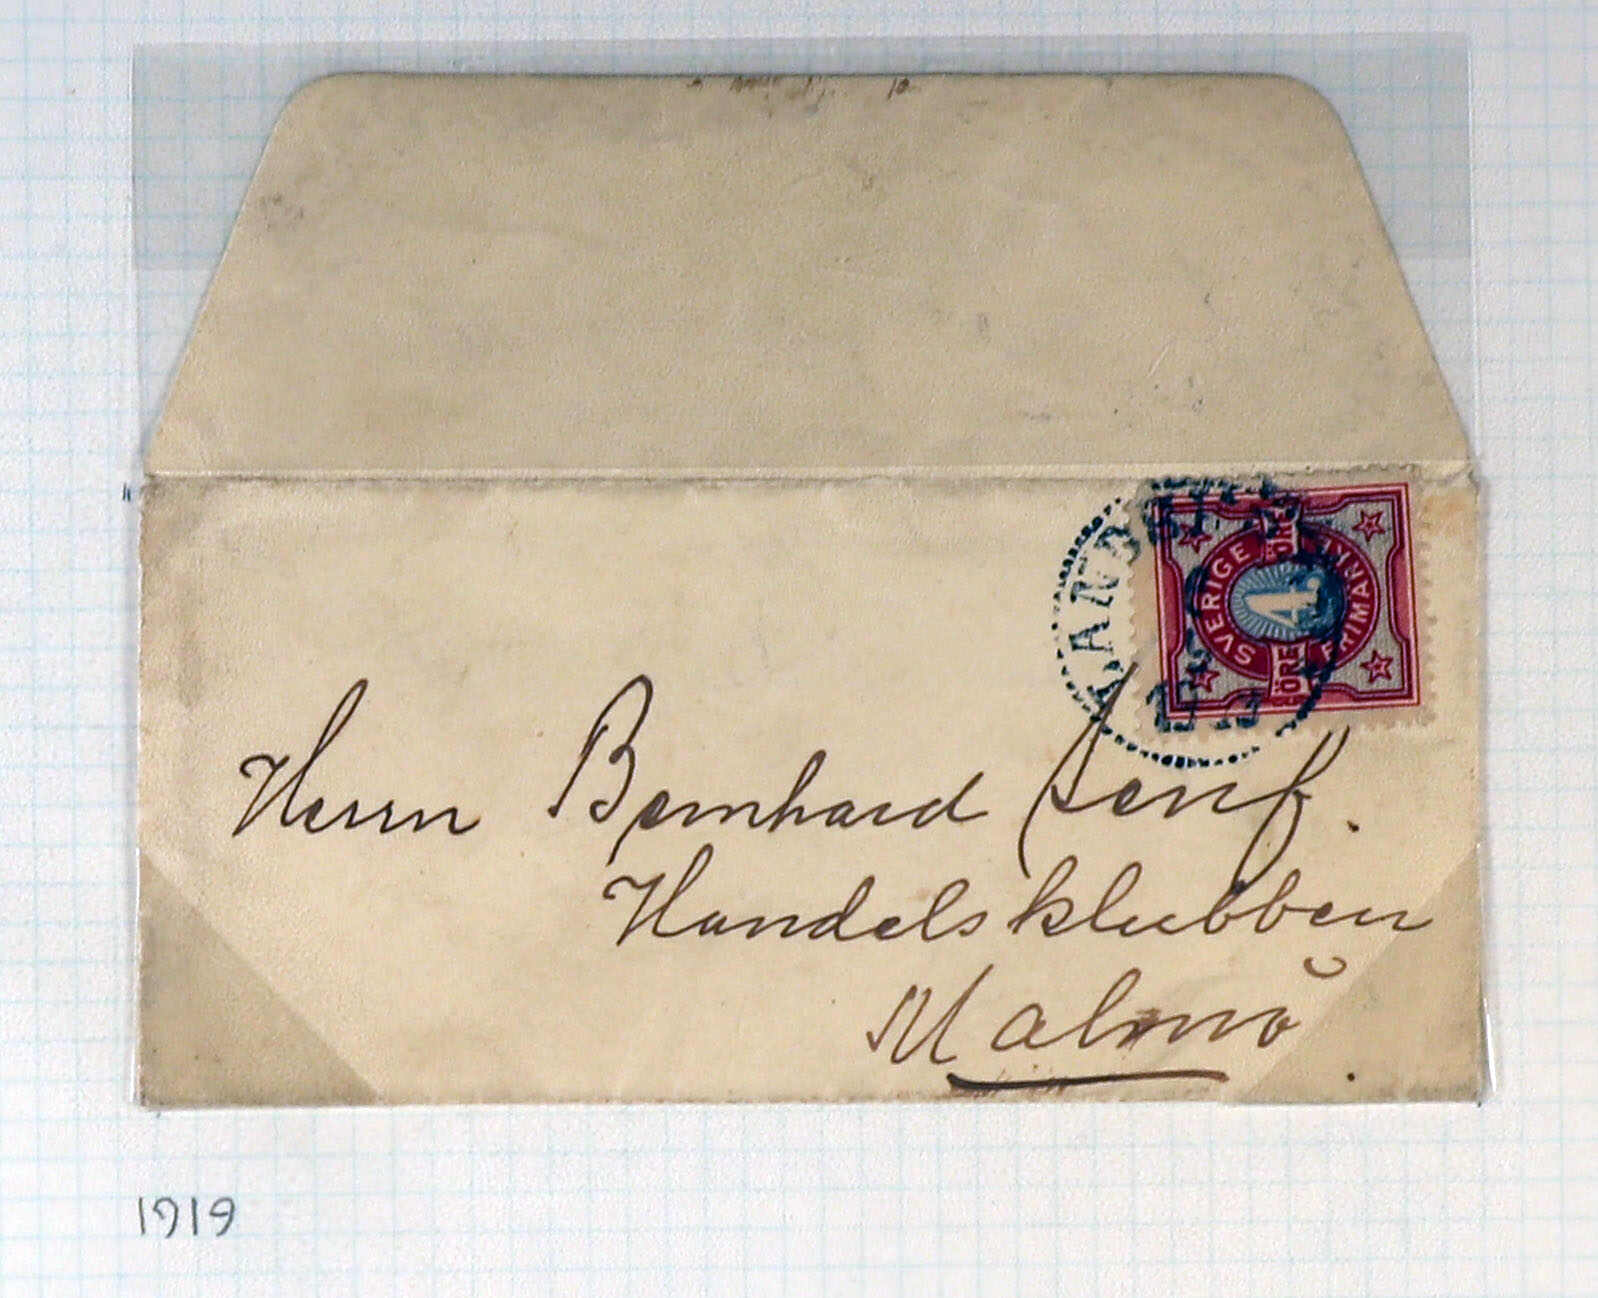 SVERIGE
FRIMÄRKE
ÖRE
4
ÖRE
Herrn Bernhard Senf.
Handelsklubben
Malmö
1919